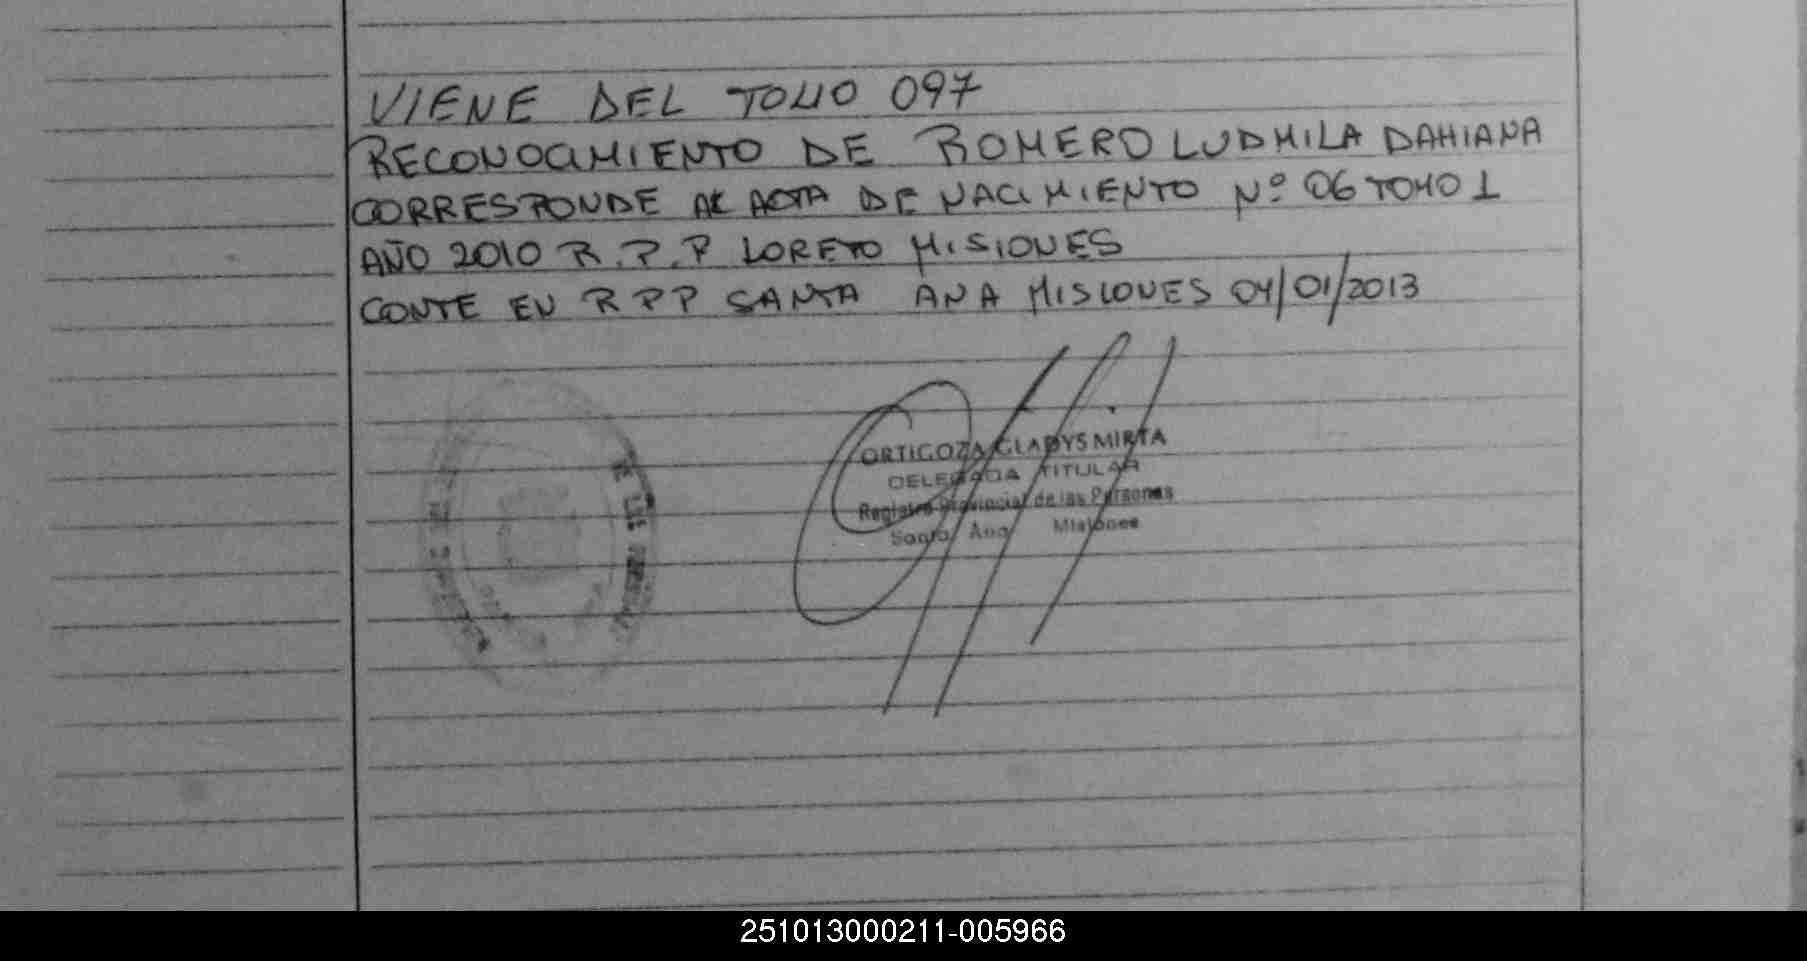 VIENE DEL TOMO 097
RECONOCIMIENTO DE ROMERO LUDMILA DAHIANA
CORRESPONDE AL ACTA DE NACIMIENTO Nº 06 TOMO 1
AÑO 2010 R.P.P LORETO MISIONES
CONTE EN R P P SANTA ANA MISIONES 04/01/2013
ORTIGOZA GLADYS MIRTA
DELEGADA TITULAR
Registro Provincial de las Personas
Santa Ana Misiones
251013000211-005966